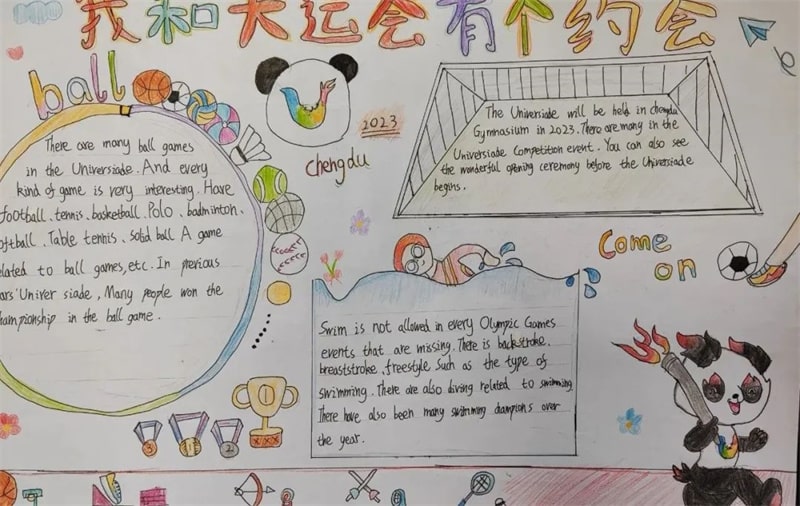 我和大运会有个约会
ball
There are many ball games
in the Universiade. And every
kind of game is very interesting. Have
football、tennis、basketball Polo、badminton、
oftball、Table tennis、solid ball A game
elated to ball games, etc. In previous
ars' Univer siade, Many people won the
hampionship in the ball game.
2023
chengdu
The Universiade will be held in chengdu
Gymnasium in 2023. There are many in the
Universiade Competition event. You can also see
the wonderful opening ceremony before the Universiade
begins.
Come
on
Swim is not allowed in every Olympic Games
events that are missing. There is backstroke,
breaststroke, freestyle Such as the type of
swimming. There are also diving related to swimming
There have also been many swimming champions over
the year.
3
1
2
XXX